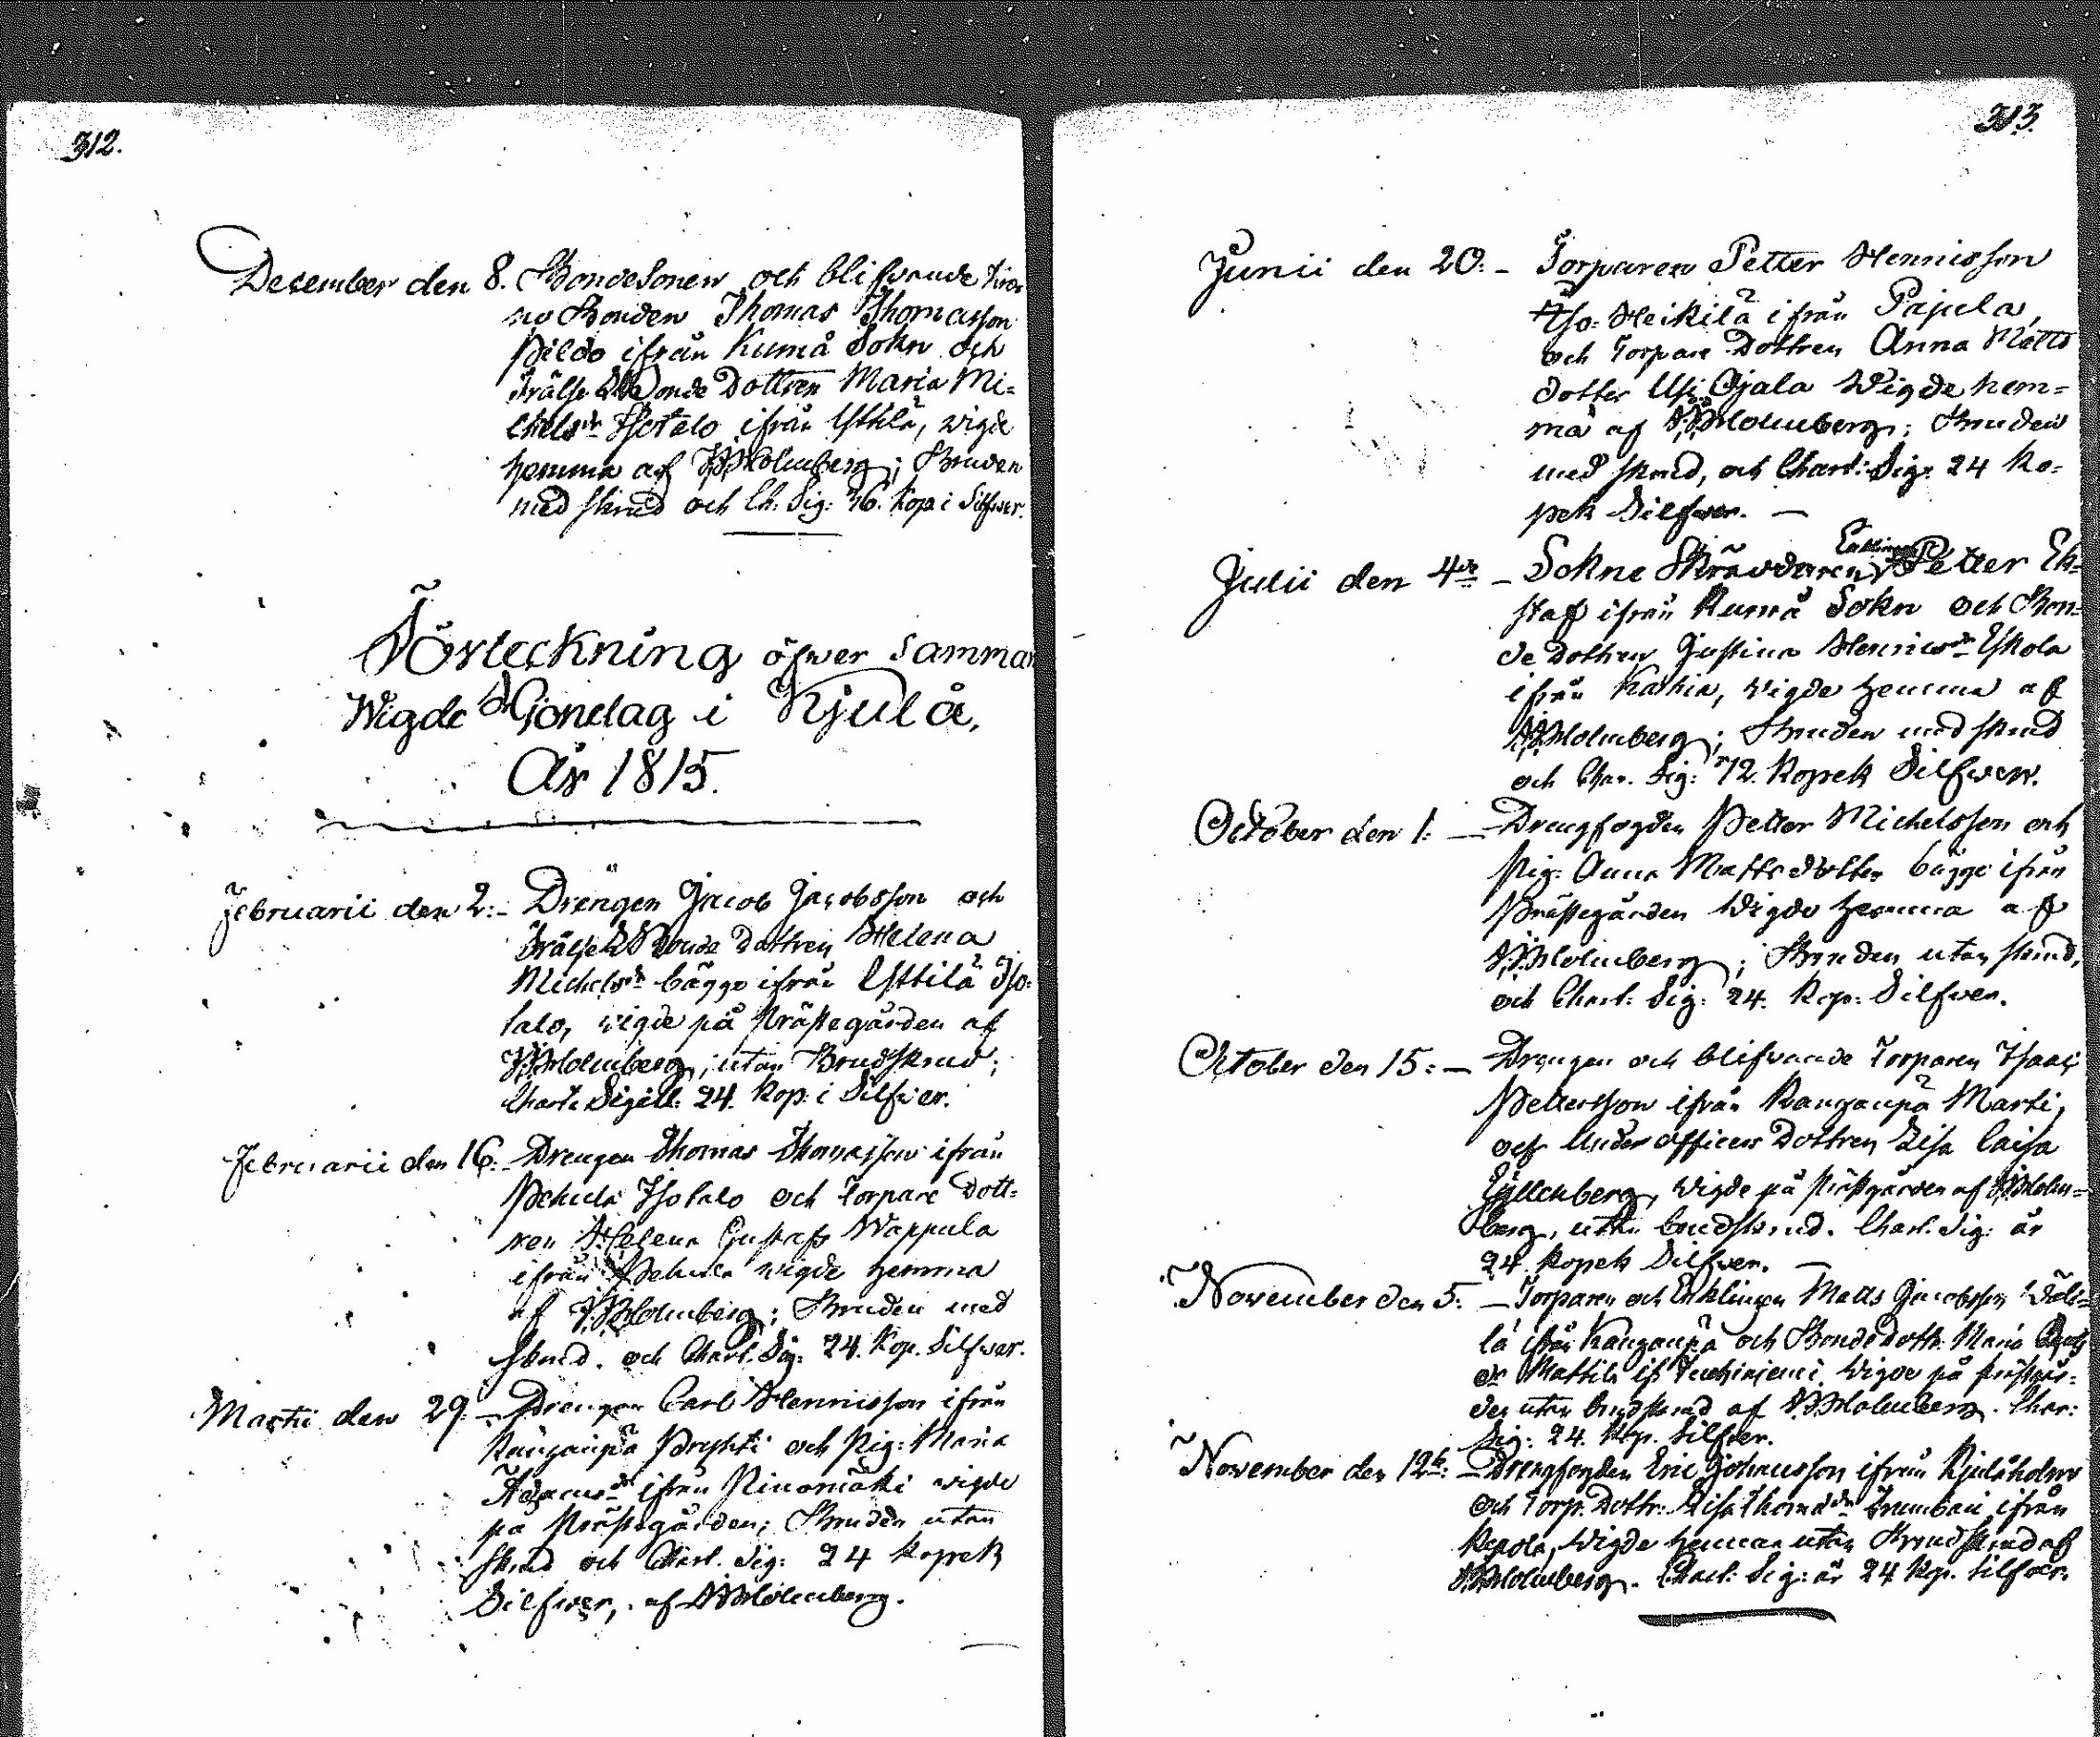 312.
December den 8. Bondesonen och blifvande Kro
no Bonden Thomas Thomasson
Pildo ifrån Kumå Sokn och
Frälse Bonde Dottren Maria Mi=
chelsdr Isotalo ifrån Yttilä, wigde
hemma af Holmberg; Bruden
med skrud och Ch. Sig: 36. Kop. i Silfwer.
Förteckning öfwer samman
Wigde Hjonelag i Kjulå,
År 1815.
Februarii den 2:- Drengen Jacob Jacobsson och
Frälse Bonde Dottren Helena
Michelsdr bägge ifrån Yttilä Iso=
talo, wigde på Prästegården af
Holmberg, utan Brudskrud;
Charte Sigill: 24. Kop: i Silfver.
Februarii den 16:- Drengen Thomas Thomasson ifrån
Pehula Isotalo och Torpare Dott=
ren Helena Gustafs Wappula
ifrån Pehula wigde hemma
af Holmberg; Bruden med
skrud. och Chart. Sig: 24. Kop. Silfwer.
Martii den 29.- Drengen Carl Hennisson ifrån
Kangaipä Prykti och Pig: Maria
Adamsdr ifrån wigde
på Prästegården; Bruden utan
skrud och Chart. Sig: 24 Kopek
Silfwer, af Holmberg.
313.
Junii den 20:- Torparen Petter Hennisson
Iso-Heikilä ifrån Pajula,
och Torpare Dottren Anna Matts
dotter Ojala Wigde hem=
ma af Holmberg; Bruden
med skrud, och Chart: Sig: 24 Ko=
pek Silfwer. —
Julii den 4de - Sokne Skräddaren Enklingen Petter Ek=
staf ifrån Kumå Sokn och Bon=
de Dottren Justina Hennisdr Eskola
ifrån Karhia, wigde hemma af
Holmberg; Bruden med skrud
och Char. Sig: 72. Kopek Silfwer.
October den 1: — Drengfogden Petter Michelsson och
Pig: Anna Mattsdotter bägge ifrån
Prästegården Wigde hemma af
Holmberg; Bruden utan skrud,
och Chart: Sig: 24. Kop: Silfwer.
October den 15: — Drengen och blifwande Torparen Isaac
Pettersson ifrån Kangaipä Marti,
och Under officers Dottren Lisa Caisa
Gyllenberg, Wigde på Prästgården af Holm=
berg, utan brudskrud. Chart. Sig: är
24. Kopek Silfwer. —
November den 5: — Torparen och Enklingen Matts Jacobsson Wäli=
lä ifrån Kangaipä och Bondedottr. Maria
dr Mattila ifr. wigde på Prästgår=
den utan brudskrud af Holmberg. Char:
Sig: 24. Kop. Silfver.
November den 12te: — Drengfogden Eric Johansson ifrån Kjuloholm
och Torp. Dottr: Lisa Thomasdr ifrån
Kepola, Wigde hemma utan Brudskrud af
Holmberg. Chart: Sig: är 24 Kop. Silfver.